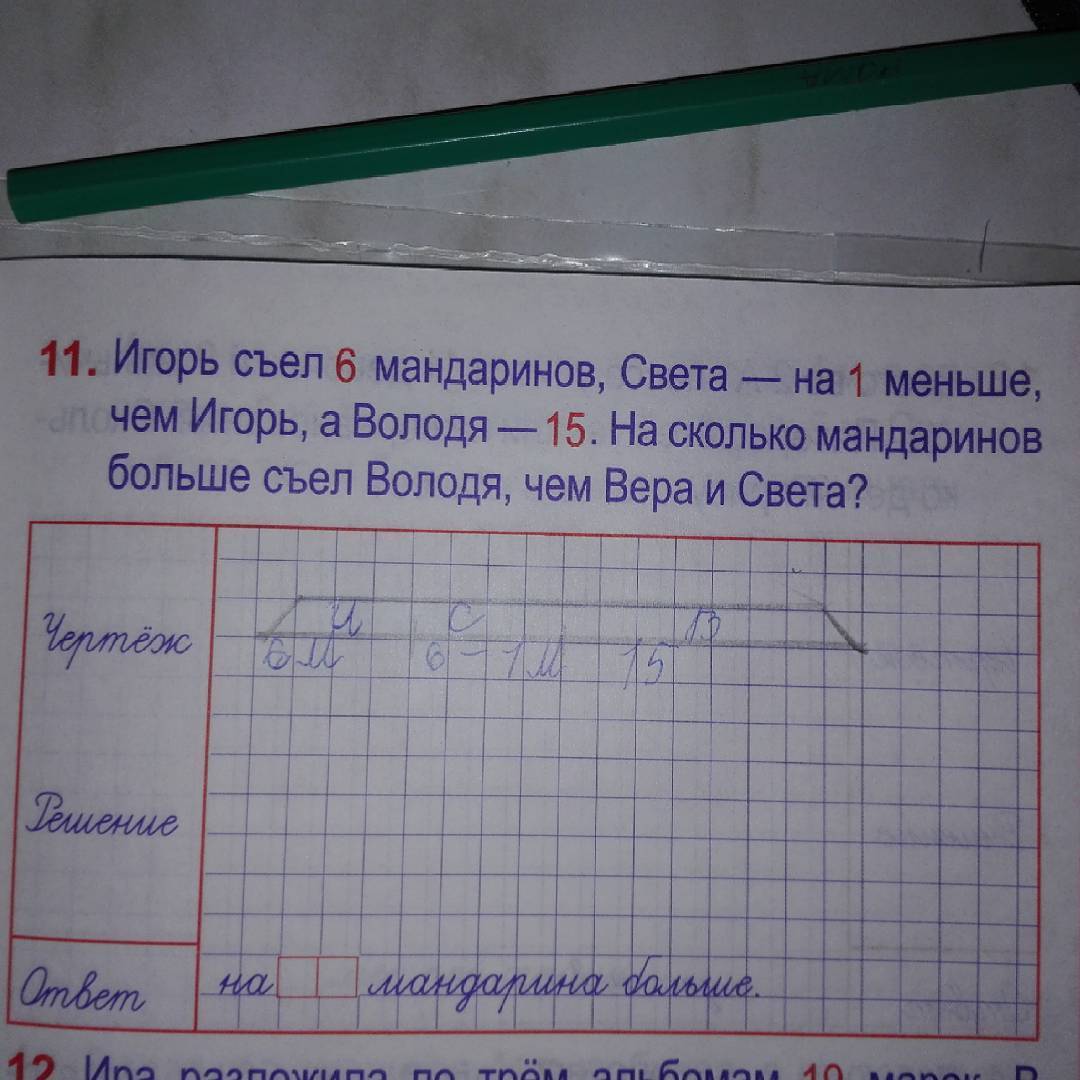 11. Игорь съел 6 мандаринов, Света — на 1 меньше,
чем Игорь, а Володя — 15. На сколько мандаринов
больше съел Володя, чем Вера и Света?
Чертёж
И С В
6м 6-1м 15
Решение
Ответ
на мандарина больше.
12. Ира разложила по трём альбомам 19 марок. В